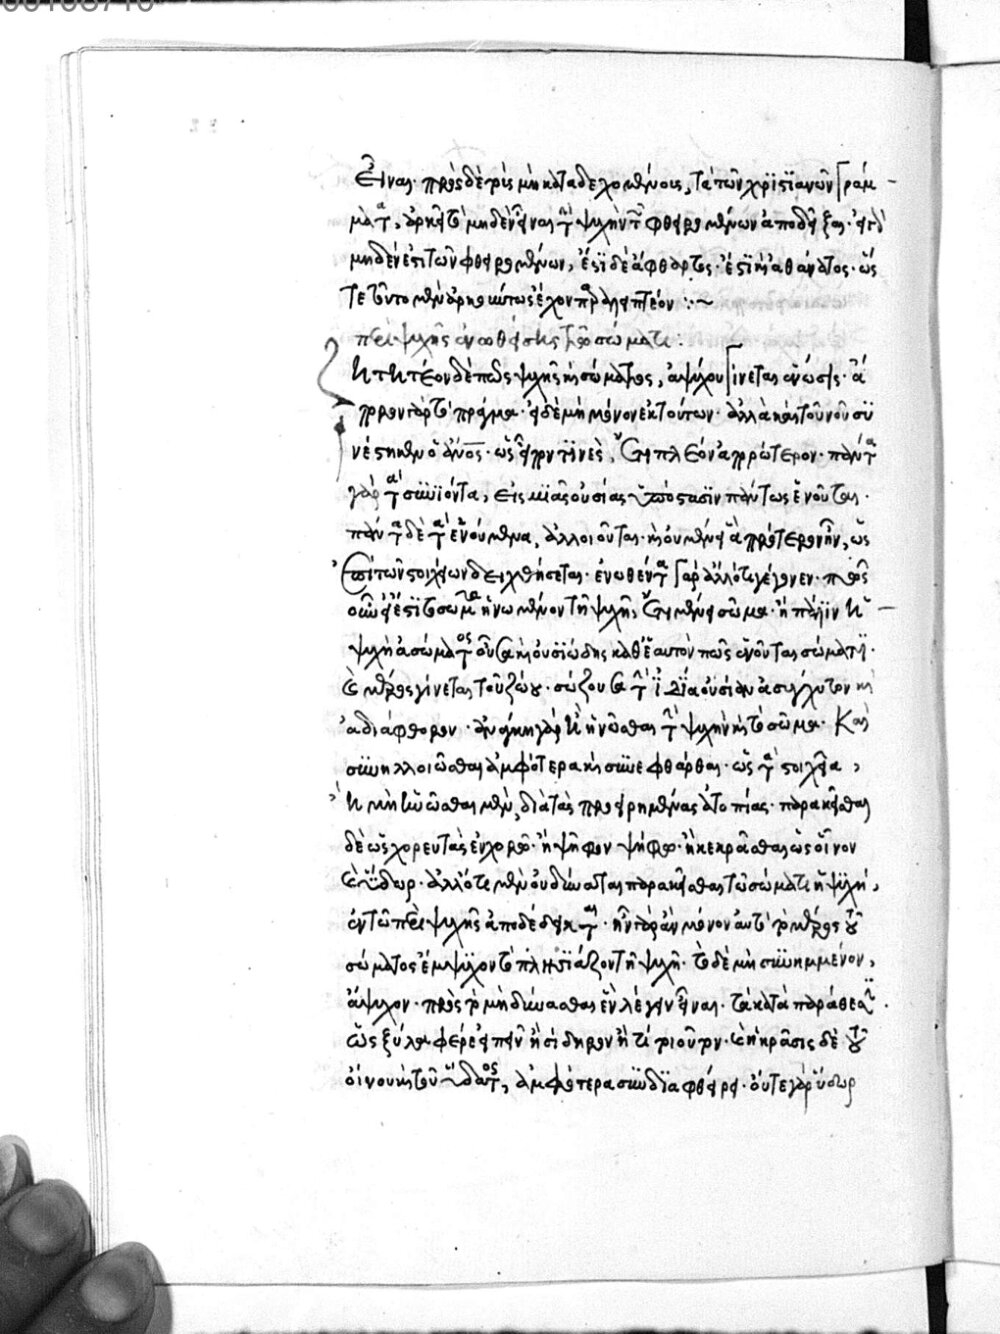 εἶναι· πρὸς δὲ τοὺς μὴ καταδεχομένους, τὰ τῶν χριστιανῶν γράμ
ματα, ἀρκεῖ τὸ μηδὲν εἶναι τὴν ψυχὴν τῶν φθειρομένων ἀποδεῖξαι· εἰ γὰρ
μηδέν ἐστι τῶν φθειρομένων, ἔστι δὲ ἄφθαρτος· ἔστι καὶ ἀθάνατος· ὥς
τε τοῦτο μὲν ἀρκούντως ἔχον παραλειπτέον :~
περὶ ψυχῆς ἑνωθείσης τῷ σώματι:
Ζητητέον δὲ πῶς ψυχῆς καὶ σώματος, ἀψύχου γίνεται ἕνωσις· ἄ
πορον γὰρ τὸ πρᾶγμα· εἰ δὲ μὴ μόνον ἐκ τούτων· ἀλλὰ καὶ τοῦ νοῦ συ
νέστηκεν ὁ ἄνος· ὡς εἶπόν τινες, ἔτι πλέον ἀπορώτερον· πάντα
γὰρ τὰ συνιόντα, εἰς μιᾶς οὐσίας ὑπόστασιν πάντως ἑνοῦται·
πάντα δὲ τὰ ἑνούμενα, ἀλλοιοῦται· καὶ οὐ μένει ἃ πρότερον ἦν, ὡς
ἐπὶ τῶν στοιχείων δειχθήσεται· ἑνωθέντα γὰρ ἄλλό τι γέγονεν· πῶς
οὖν εἰ ἔστι τὸ σῶμα ἡνωμένον τῇ ψυχῇ, ἔτι μένει σῶμα· ἢ πάλιν ἡ
ψυχὴ ἀσώματος οὖσα καὶ οὐσιώδης καθ' ἑαυτὸν πῶς ἑνοῦται σώματι·
καὶ μέρος γίνεται τοῦ ζώου· σώζουσα τὴν ἰδίαν οὐσίαν ἀσύγχυτον καὶ
ἀδιάφθορον· ἀνάγκη γὰρ ἢ ἡνῶσθαι τὴν ψυχὴν καὶ τὸ σῶμα· καὶ
συνηλλοιῶσθαι ἀμφότερα καὶ συνεφθάρθαι· ὡς τὰ στοιχεῖα,
ἢ μὴ ἡνῶσθαι μὲν, διὰ τὰς προειρημένας ἀτοπίας· παρακεῖσθαι
δὲ ὡς χορευτὰς ἐν χορῷ· ἢ ψῆφον ψήφῳ· ἢ κεκρᾶσθαι ὡς οἶνον
καὶ ὕδωρ· ἀλλ' ὅτι μὲν οὐ δύναται παρακεῖσθαι τῷ σώματι ἡ ψυχή,
ἐν τῷ περὶ ψυχῆς ἀποδέδεικται· ἦν γὰρ ἂν μόνον ἐκεῖνο τὸ μέρος τοῦ
σώματος ἔμψυχον τὸ πλησιάζον τῇ ψυχῇ· τὸ δὲ μὴ συνημμένον,
ἄψυχον· πρὸς τὸ μὴ δύνασθαι ἓν λέγειν εἶναι· τὰ κατὰ παράθεσιν·
ὡς ξύλα φέρε εἰπεῖν ἢ σίδηρον ἤ τι τοιοῦτον· καὶ ἡ κρᾶσις δὲ τοῦ
οἴνου καὶ τοῦ ὕδατος, ἀμφότερα συνδιαφθείρει· οὔτε γὰρ ὕδωρ